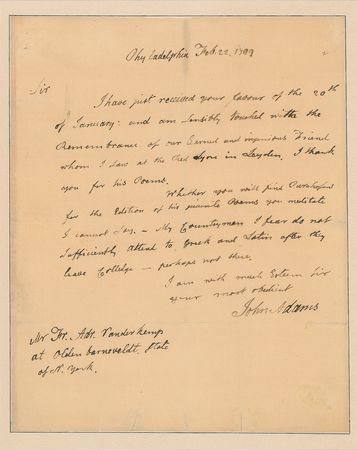 Philadelphia Feb. 22. 1799
Sir
I have just received your favour of the 20th
of January: and am sensibly touched with the
Remembrance of our learned and ingenious Friend
whom I saw at the Red Lyon in Leyden. I thank
you for his Poems.
Whether you will find Purchasers
for the Edition of his juvenile Poems you meditate
I cannot say. — My Countrymen I fear do not
sufficiently attend to Greek and Latin after they
leave Colledge — perhaps not there.
I am with much Esteem Sir
your most obedient
John Adams
Mr Fr. Adr. Vanderkemp
at Olden barneveldt, State
of N. York.